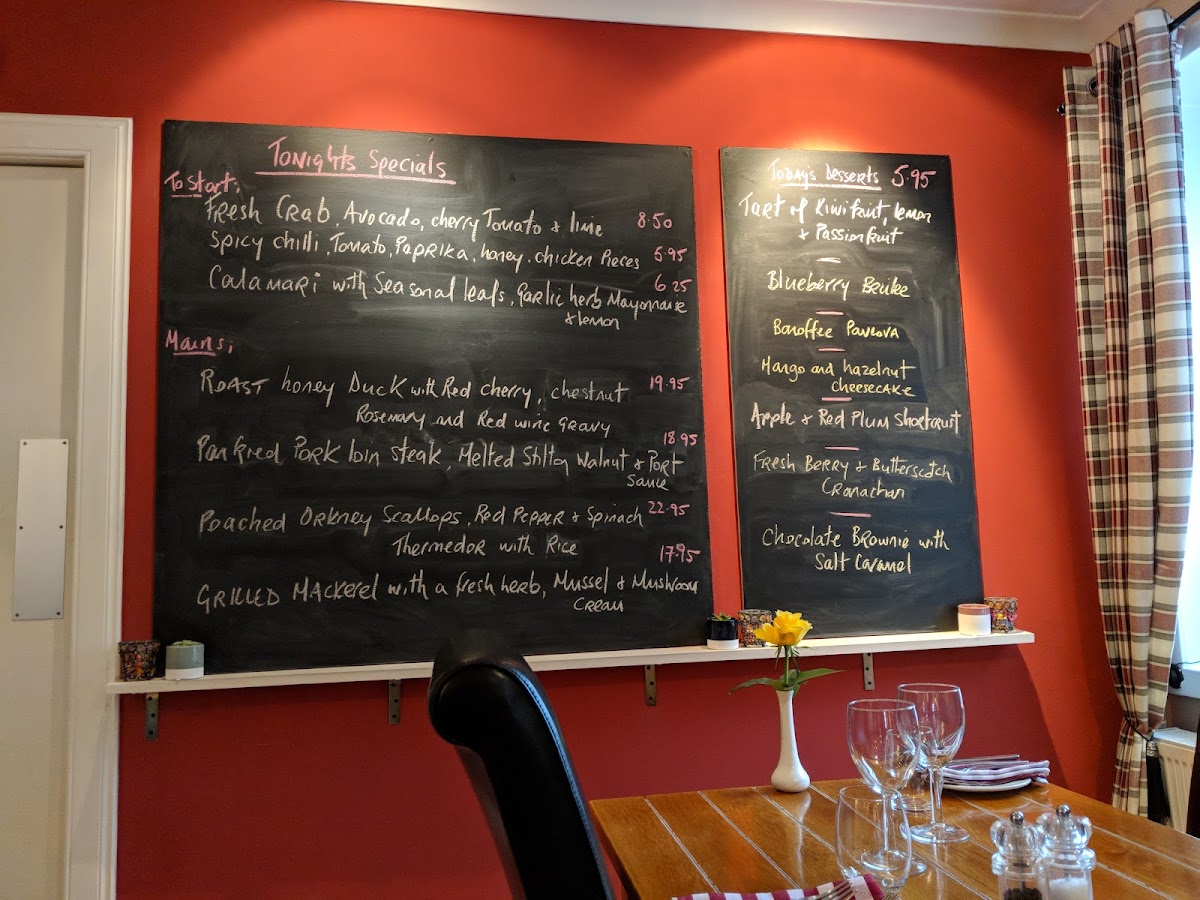 Tonights Specials
To Start;
Fresh Crab, Avocado, cherry Tomato & lime 8.50
Spicy chilli, Tomato, Paprika, honey, chicken Pieces 5.95
Calamari with Seasonal leafs, Garlic herb Mayonnaise 6.25
& lemon
Mains;
Roast honey Duck with Red cherry, chestnut 19.95
Rosemary and Red wine Gravy
Pan fried Pork loin Steak, Melted Stilton Walnut & Port 18.95
Sauce
Poached Orkney Scallops, Red Pepper & Spinach 22.95
Thermedor with Rice
Grilled Mackerel with a fresh herb, Mussel & Mushroom 17.95
Cream
Todays Desserts 5.95
Tart of Kiwi fruit, lemon
& Passionfruit
Blueberry Brulee
Banoffee Pavlova
Mango and hazelnut
cheesecake
Apple & Red Plum Shortcrust
Fresh Berry & Butterscotch
Cranachan
Chocolate Brownie with
Salt Caramel